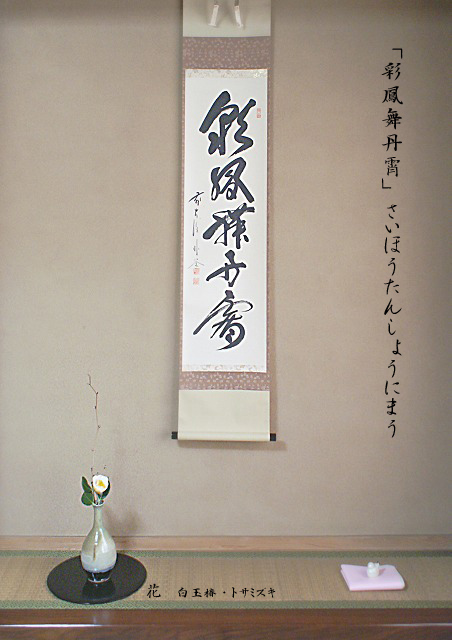 「彩鳳舞丹霄」さいほうたんしょうにまう
彩鳳舞丹霄
花 白玉椿・トサミズキ